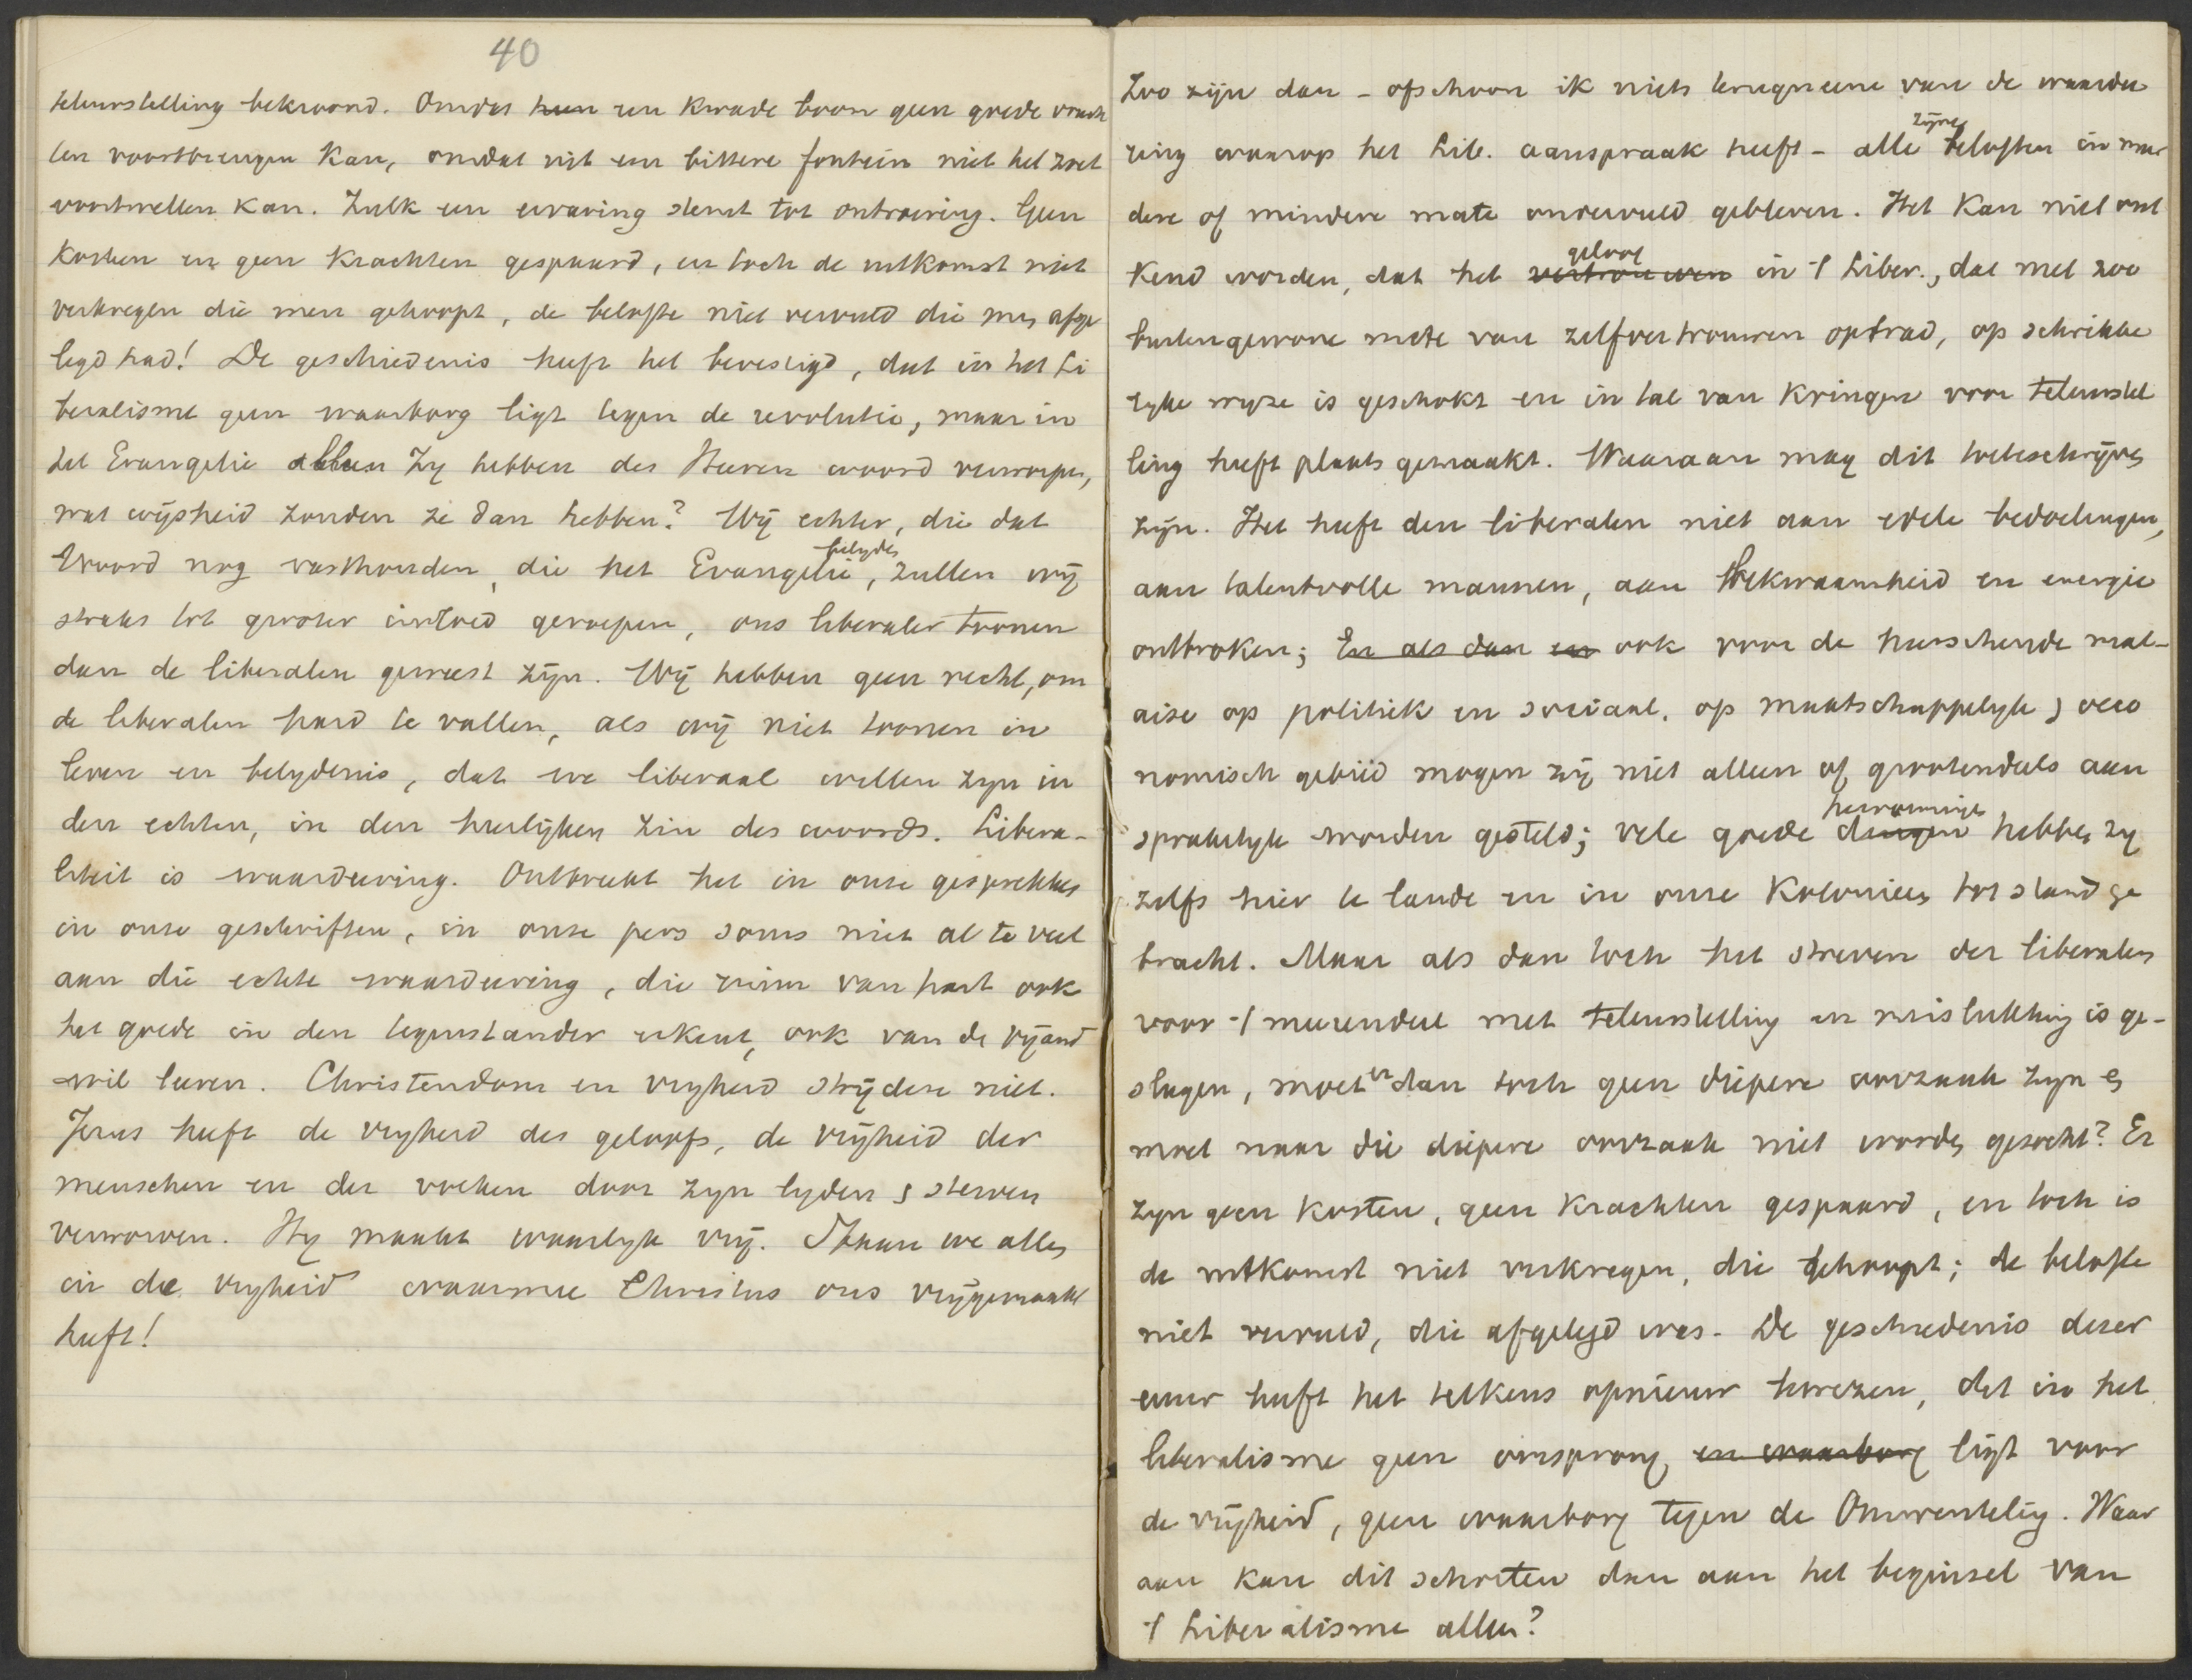 40
teleurstelling bekroond. Omdat hun een kwade boom geen goede vruch
ten voortbrengen kan, omdat uit een bittere fontein niet het zoet
voortwellen kan. Zulk een ervaring stemt tot ontroering. Geen
kosten en geen krachten gespaard, en toch de uitkomst niet
verkregen die men gehoopt, de belofte niet vervuld die men afge
legd had! De geschiedenis heeft het bevestigd, dat in het Li
beralisme geen waarborg ligt tegen de revolutie, maar in
het Evangelie alleen Zy hebben des Heeren woord verworpen,
wat wijsheid zouden ze dan hebben? Wij echter, die dat
Woord nog vasthouden, die het Evangelie belyden, zullen wij
straks tot grooter invloed geroepen, ons liberaler toonen
dan de liberalen geweest zijn. Wij hebben geen recht, om
de liberalen hard te vallen, als wij niet toonen in
leven en belydenis, dat we liberaal willen zyn in
den echten, in den heerlijken zin des woords. Libera-
liteit is waardeering. Ontbreekt het in onze gesprekken
in onze geschriften, in onze pers soms niet al te veel
aan die echte waardeering, die ruim van hart ook
het goede in den tegenstander erkent, ook van de vijand
wil leeren. Christendom en vryheid strijden niet.
Jezus heeft de vryheid des geloofs, de vrijheid der
menschen en der volken door zyn lyden & sterven
verworven. Hy maakt waarlyk vrij. Staan we allen
in de vryheid waarmee Christus ons vrijgemaakt
heeft!
Zoo zijn dan - ofschoon ik niets terugneem van de waardee
ring waarop het Lib. aanspraak heeft - alle zijne beloften in meer
dere of mindere mate onvervuld gebleven. Het kan niet ont
kend worden, dat het vertrouwen geloof in 't Liber., dat met zoo
buitengewone mate van zelfvertrouwen optrad, op schrikke
lyke wyze is geschokt en in tal van kringen voor teleurstel
ling heeft plaats gemaakt. Waaraan mag dit toeteschrijven
zijn. Het heeft den liberalen niet aan edele bedoelingen,
aan talentvolle mannen, aan bekwaamheid en energie
ontbroken; En als dan en ook voor de heerschende mal-
aise op politiek en sociaal, op maatschappelyk & oeco
nomisch gebied mogen zij niet alleen of grootendeels aan
sprakelyk worden gesteld; vele goede dingen hervormingen hebben zy
zelfs hier te lande en in onze Koloniën tot stand ge
bracht. Maar als dan toch het streven der liberalen
voor 't meerendeel met teleurstelling en mislukking is ge-
slagen, moet er dan toch geen diepere oorzaak zyn en
moet naar die diepere oorzaak niet worden gezocht? Er
zyn geen kosten, geen krachten gespaard, en toch is
de uitkomst niet verkregen, die gehoopt; de belofte
niet vervuld, die afgelegd was. De geschiedenis dezer
eeuw heeft het telkens opnieuw bewezen, dat in het
liberalisme geen oorsprong en waarborg ligt voor
de vrijheid, geen waarborg tegen de Omwenteling. Waar
aan kan dit schorten dan aan het beginsel van
't Liberalisme alleen?